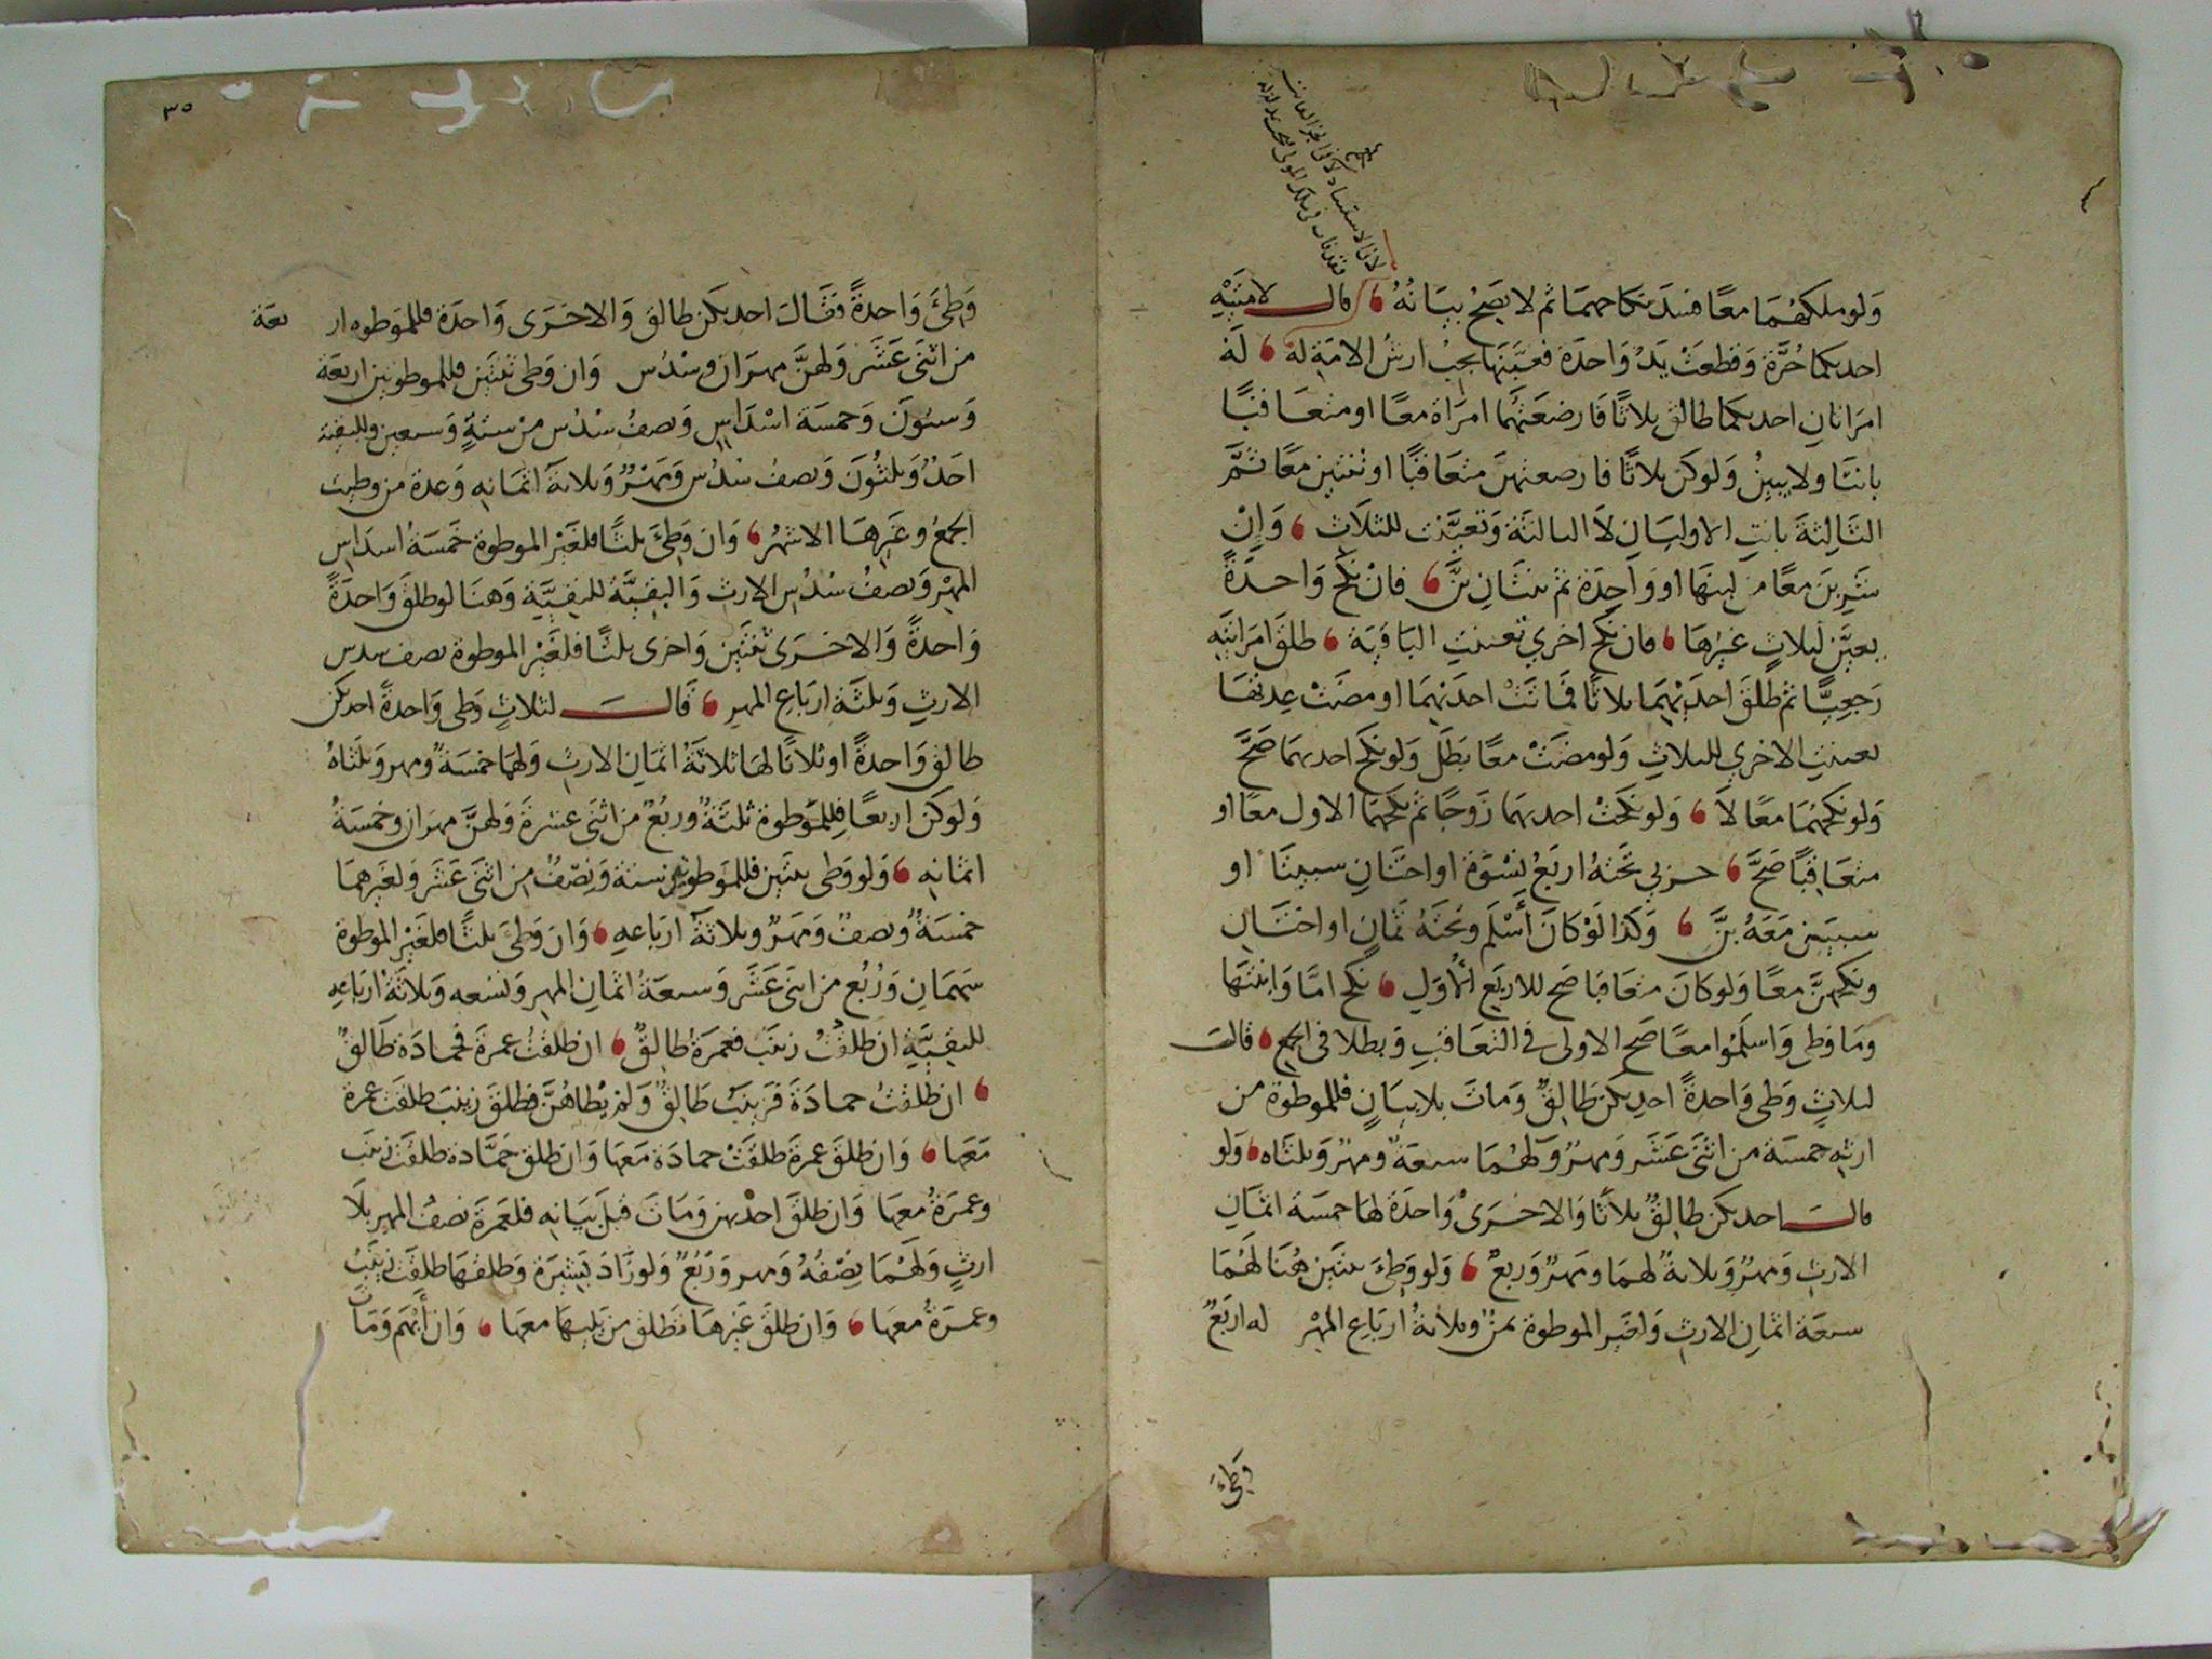 وَلَو ملكهُمَا معًا فسَدَ نكاحهمَا ثم لا يصَحُ بيَانُهُ قال لامتَيْهِ
احديكما حُرَّة وَقطعَتْ يَدُ وَاحدَة فعيَّنَهَا يجبُ ارشُ الامَةِ لهُ لَهُ
امرَاتانِ احديكما طالق ثلاثًا فَارضعَتهُما امرَاة معًا او متعَاقبًا
بانتَا ولا يبينُ وَلو كن ثلاثًا فارضعتهنَ متعَاقبًا او ثنتينِ معًا ثمَّ
الثَالِثةَ بانتِ الاوليَانِ لاَ الثالثة وَتعيَّنت للثلاَثِ وَاِنْ
شَرِبنَ معًا من لبنهَا او وَاحِدَة ثم ثنتَانِ بنَّ فانْ نكَح وَاحدَةً
يعيَّن لثلاثٍ غيرهَا فان نكح اخري تعينتِ البَاقيَة طلقَ امرَاتيَهِ
رَجعِيًّا ثم طلقَ احدَيْهِمَا ثلاثًا فمَاتَتْ احدَيْهمَا او مضَتْ عِدتُهَا
تعينتِ الاخري للثلاثِ وَلو مضَتْ معًا بَطَلَ وَلو نكَح احديهمَا صَحَّ
وَلو نكحَهُمَا معًا لاَ وَلو نكحَتْ احديهمَا زَوجًا ثم نكحَهمَا الاول معًا او
متعَاقبًا صَحَّ حربي تحتَهُ اربَعُ نِسْوَة او اختَانِ سبيتَا او
سبينَ مَعَهُ بنَّ وَكَذا لَوْ كَانَ أَسْلَمَ وتحتَهُ ثمَانٍ او اختَانِ
ونكحَهنَّ معًا وَلو كانَ متعَاقبًا صح للاربَعِ الأُوَلِ نكح امًّا وَابنتَهَا
ومَا وَطى وَاسلمُوا معًا صَح الاولى في التعَاقبِ وَبطلا في الجمع قالت
لثلاثٍ وَطى وَاحدةً احديكن طَالِقٌ وَماتَ بلا بيَانٍ فللموطوة من
ارثهِ خمسَة من اثنَى عَشَر وَمهرٌ وَلهُمَا سبعَةٌ ومهرٌ وَثلثَاه وَلو
قالت احديكن طالِقٌ ثلاثًا وَالاخرَى وَاحدَة لها خمسَة اثمَانِ
الارثِ وَمهرٌ وَثلاثةٌ لهمَا ومَهرٌ وَربعٌ وَلو وَطِئَ ثنتَين هُنَا لَهُمَا
سبعَة اثمَانِ الارثِ وَلغيرِ الموطوة ثمنٌ وثلاثةُ اربَاعِ المهْرِ له اربَعٌ
وَطِئَ
وَطِئَ وَاحدةً فقَالَ احديكن طالق وَالاخرَى وَاحدَة فللموَطوه ار بعَة
من اثنَى عَشَر وَلهنَّ مهرَان وسُدُس وَان وَطى ثنتَين فللموطوتين اربعَة
وَستونَ وَخمسَة اسْدَاسٍ وَنصفُ سُدُس من ستةٍ وَتسعين وللبقية
احَدٌ وَثلثُونَ وَنصفُ سُدُس وَمَهْرٌ وَثلاثةَ اثمَانهِ وَعدة من وطيت
الجمعُ وغَيرهَا الاشهُرُ وَان وَطِئَ ثلثًا فلغَيْرِ الموطوة خَمسَةُ اسدَاس
المهْرِ وَنصفُ سُدُسِ الارثِ وَالبقيَّةُ للبقيَّةِ وَهنَا لو طلقَ وَاحدَةً
وَاحدةً وَالاخرَى ثنتَينِ وَاخرى ثلثًا فلغَيْرِ الموطوة نصف سدس
الارثِ وَثلثَة اربَاعِ المهرِ قَالَ لثلاثٍ وَطى وَاحدةً احديكن
طالق وَاحدةً او ثلاثًا لهَا ثلاثَةُ اثمَانِ الارثِ وَلهمَا خمسَةٌ ومهر وَثلثَاهُ
وَلو كن اربعًا فللمَوطوة ثلثَةٌ وربُعٌ من اثنَى عشرةَ وَلهنَّ مهرَان وخمسَةُ
اثمَانهِ وَلو وَطى ثنتَين فللموَطوتينِ ستة وَنِصْفٌ من اثنَى عَشَر وَلغيرِهمَا
خمسَةٌ ونصفٌ وَمَهَرٌ وثلاثَةُ اربَاعهِ وَان وَطِئَ ثلثًا فلغَيْرِ الموطوة
سَهمَانِ وَرُبُع من اثنَى عَشَر وَسبعَةُ اثمَانِ المهرِ وَتسْعه وَثلاثَةُ اربَاعهِ
للبقيَّةِ ان طلقتُ زينَب فعمرَةُ طالِقٌ ان طلقتُ عمرةَ فحمادَة طَالقٌ
ان طلقتُ حمادَةَ فزَينَبُ طَالقٌ وَلمْ يَطَاهُنَّ فطلقَ زينبَ طلقَت عمرة
مَعَهَا وَان طلقَ عمرةَ طلقَتْ حمادَة مَعَهَا وَان طلقَ حَمَّادة طلقَت زينَب
وعمرَةُ معهَا وَان طلقَ احدْيهن وَمَاتَ قبلَ بيَانهِ فلعَمرَةَ نصفُ المهرِ بلَا
ارثٍ وَلهُمَا نِصْفُهُ وَمهر وَرُبُعٌ وَلو زَادَ بَشِيرَة وَطلقهَا طلِقَت زينَبُ
وعمرَةُ معهَا وَان طلقَ غَيرهَا تطلق من يَليهَا معهَا وَان أَبْهَمَ وَمَاتَ
٣٥